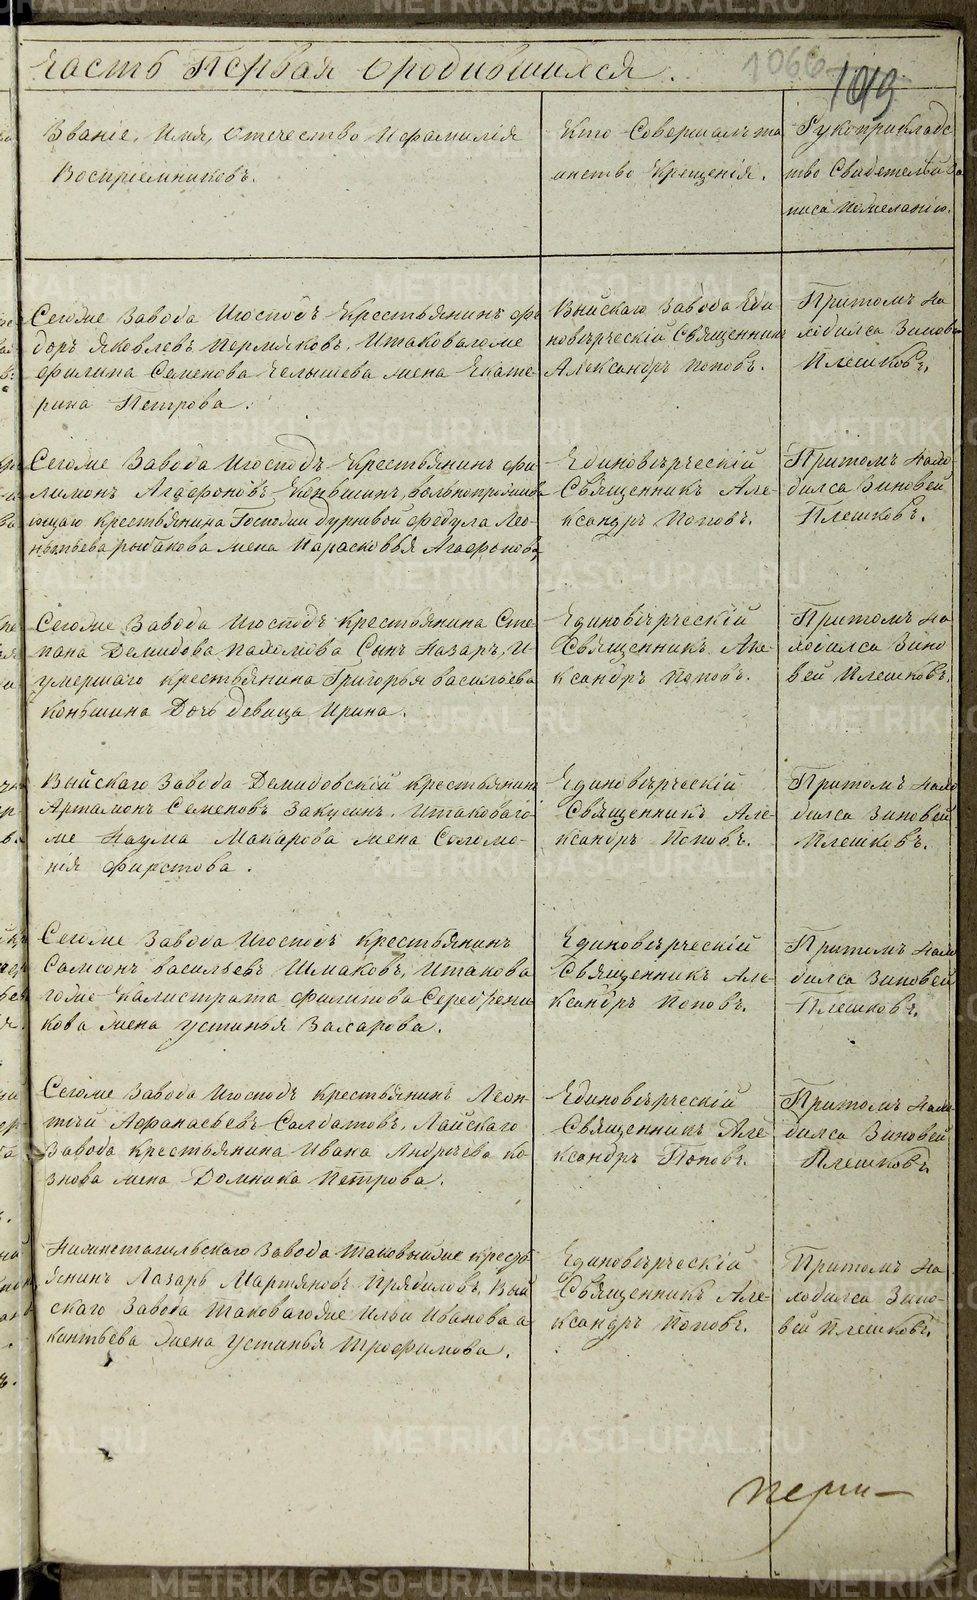 Часть Первая о родившихся.
1066
1019
Званіе, Имя, Отечество И фамилія
Воспріемниковъ.
Кто Совершалъ та
инство Крещенія.
Рукоприкладс
тво Свидетелей За
писи Пожеланію.
Сегоже Завода Игосподъ Крестьянинъ Фе
доръ Яковлевъ Пермяковъ, Итаковагоже
Филипа Семенова Челышева жена Екате
рина Петрова.
Выйскаго Завода Еди
новѣрческій Священникъ
Александръ Поповъ.
Притомъ На
ходился Зиновей
Плешковъ.
Сегоже Завода Игосподъ Крестьянинъ Фи
лимонъ Агафоновъ Коньшинъ, вольнопромышля
ющаго крестьянина Госпожи Дурновой Федула Лео-
нтьева рыбакова жена Парасковья Агафонова,
Единовѣрческій
Священникъ Але
ксандръ Поповъ.
Притомъ Нахо
дился Зиновей
Плешковъ.
Сегоже Завода Игосподъ крестьянина Сте
пана Демидова Пахомова Сынъ Назаръ, И
умершаго крестьянина Григорья васильева
Коньшина Дочь девица Ирина.
Единовѣрческій
Священникъ Але
ксандръ Поповъ.
Притомъ На
ходился Зино
вей Плешковъ.
Выйскаго Завода Демидовскій крестьянинъ
Артамонъ Семеновъ Закусинъ, Итаковаго
же Наума Макарова жена Соломо-
нія Фирстова.
Единовѣрческій
Священникъ Але-
ксандръ Поповъ.
Притомъ Нахо
дился Зиновей
Плешковъ.
Сегоже Завода Игосподъ крестьянинъ
Самсонъ васильевъ Шмаковъ, Итакова
гоже Калистрата Филипова Серебрени
кова жена устинья Захарова.
Единовѣрческій
Священникъ Але
ксандръ Поповъ.
Притомъ Нахо
дился Зиновей
Плешковъ.
Сегоже Завода Игосподъ крестьянинъ Леон-
тій Афанасьевъ Солдатовъ, Лайскаго
Завода крестьянина Ивана Андрѣева ко
знова жена Домника Петрова.
Единовѣрческій
Священникъ Але
ксандръ Поповъ.
Притомъ Нахо
дился Зиновей
Плешковъ
Нижнетагильскаго Завода Таковыйже кресть
янинъ Лазарь Мартяновъ Прядиловъ, Вый
скаго Завода Таковагоже Ильи Иванова а
кинтьева Жена Устинья Трофимова.
Единовѣрческій
Священникъ Але-
ксандръ Поповъ.
Притомъ На
ходился Зино-
вей Плешковъ.
METRIKI.GASO-URAL.RU